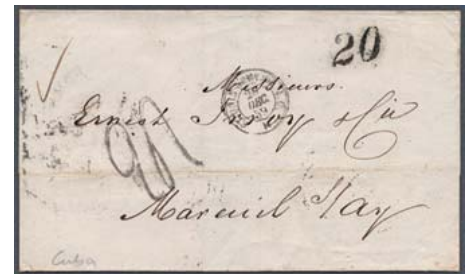 20
Messieurs
Ernest Irroy & Cie
20
Mareuil s/ay
Cuba